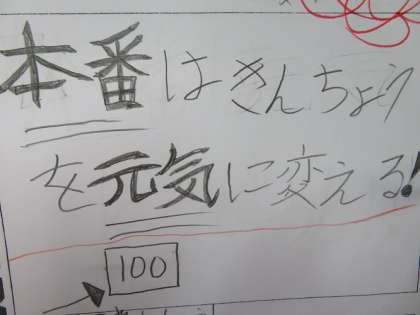 本番はきんちょう
を元気に変える!
100